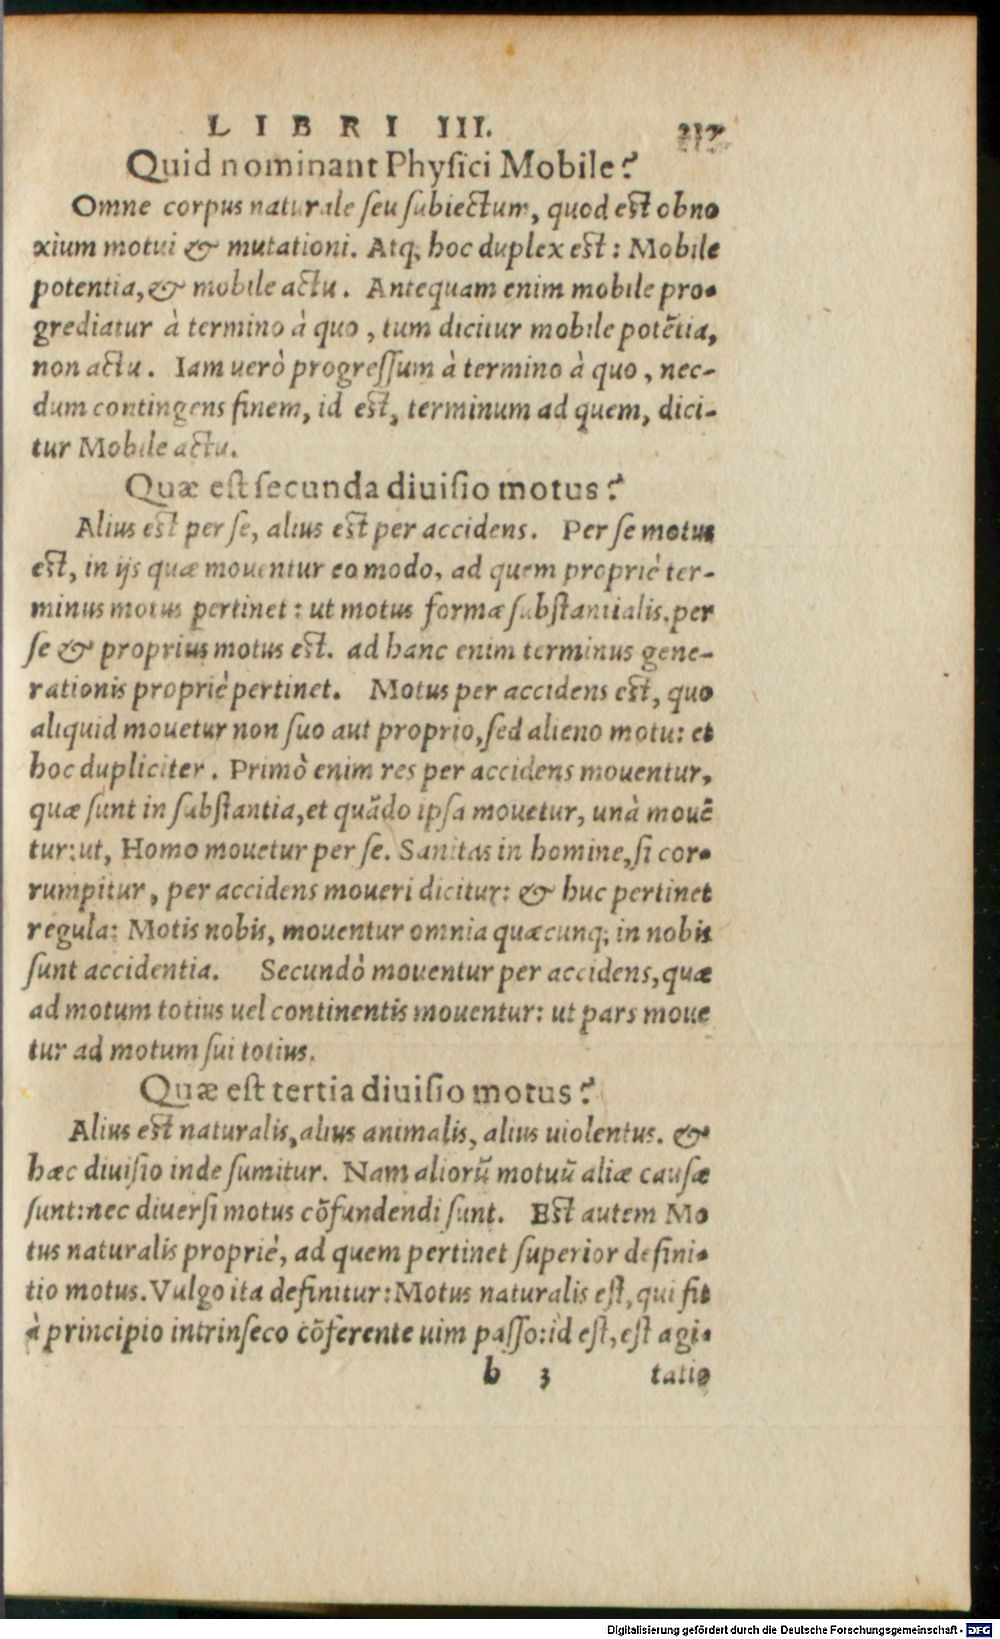 LIBRI III. 217
Quid nominant Physici Mobile?
Omne corpus naturale seu subiectum, quod est obno
xium motui & mutationi. Atq; hoc duplex est: Mobile
potentia, & mobile actu. Antequam enim mobile pro-
grediatur à termino à quo, tum dicitur mobile potẽtia,
non actu. Iam uerò progressum à termino à quo, nec-
dum contingens finem, id est, terminum ad quem, dici-
tur Mobile actu.
Quæ est secunda diuisio motus?
Alius est per se, alius est per accidens. Per se motus
est, in ijs quæ mouentur eo modo, ad quem propriè ter-
minus motus pertinet: ut motus formæ substantialis. per
se & proprius motus est. ad hanc enim terminus gene-
rationis propriè pertinet. Motus per accidens est, quo
aliquid mouetur non suo aut proprio, sed alieno motu: et
hoc dupliciter. Primò enim res per accidens mouentur,
quæ sunt in substantia, et quãdo ipsa mouetur, unà mouẽ
tur: ut, Homo mouetur per se. Sanitas in homine, si cor-
rumpitur, per accidens moueri dicitur: & huc pertinet
regula: Motis nobis, mouentur omnia quæcunq; in nobis
sunt accidentia. Secundò mouentur per accidens, quæ
ad motum totius uel continentis mouentur: ut pars moue
tur ad motum sui totius.
Quæ est tertia diuisio motus?
Alius est naturalis, alius animalis, alius uiolentus. &
hæc diuisio inde sumitur. Nam aliorũ motuũ aliæ causæ
sunt: nec diuersi motus cõfundendi sunt. Est autem Mo
tus naturalis propriè, ad quem pertinet superior defini-
tio motus. Vulgo ita definitur: Motus naturalis est, qui fit
à principio intrinseco cõferente uim passo: id est, est agi-
b 3 tatio
Digitalisierung gefördert durch die Deutsche Forschungsgemeinschaft - DFG